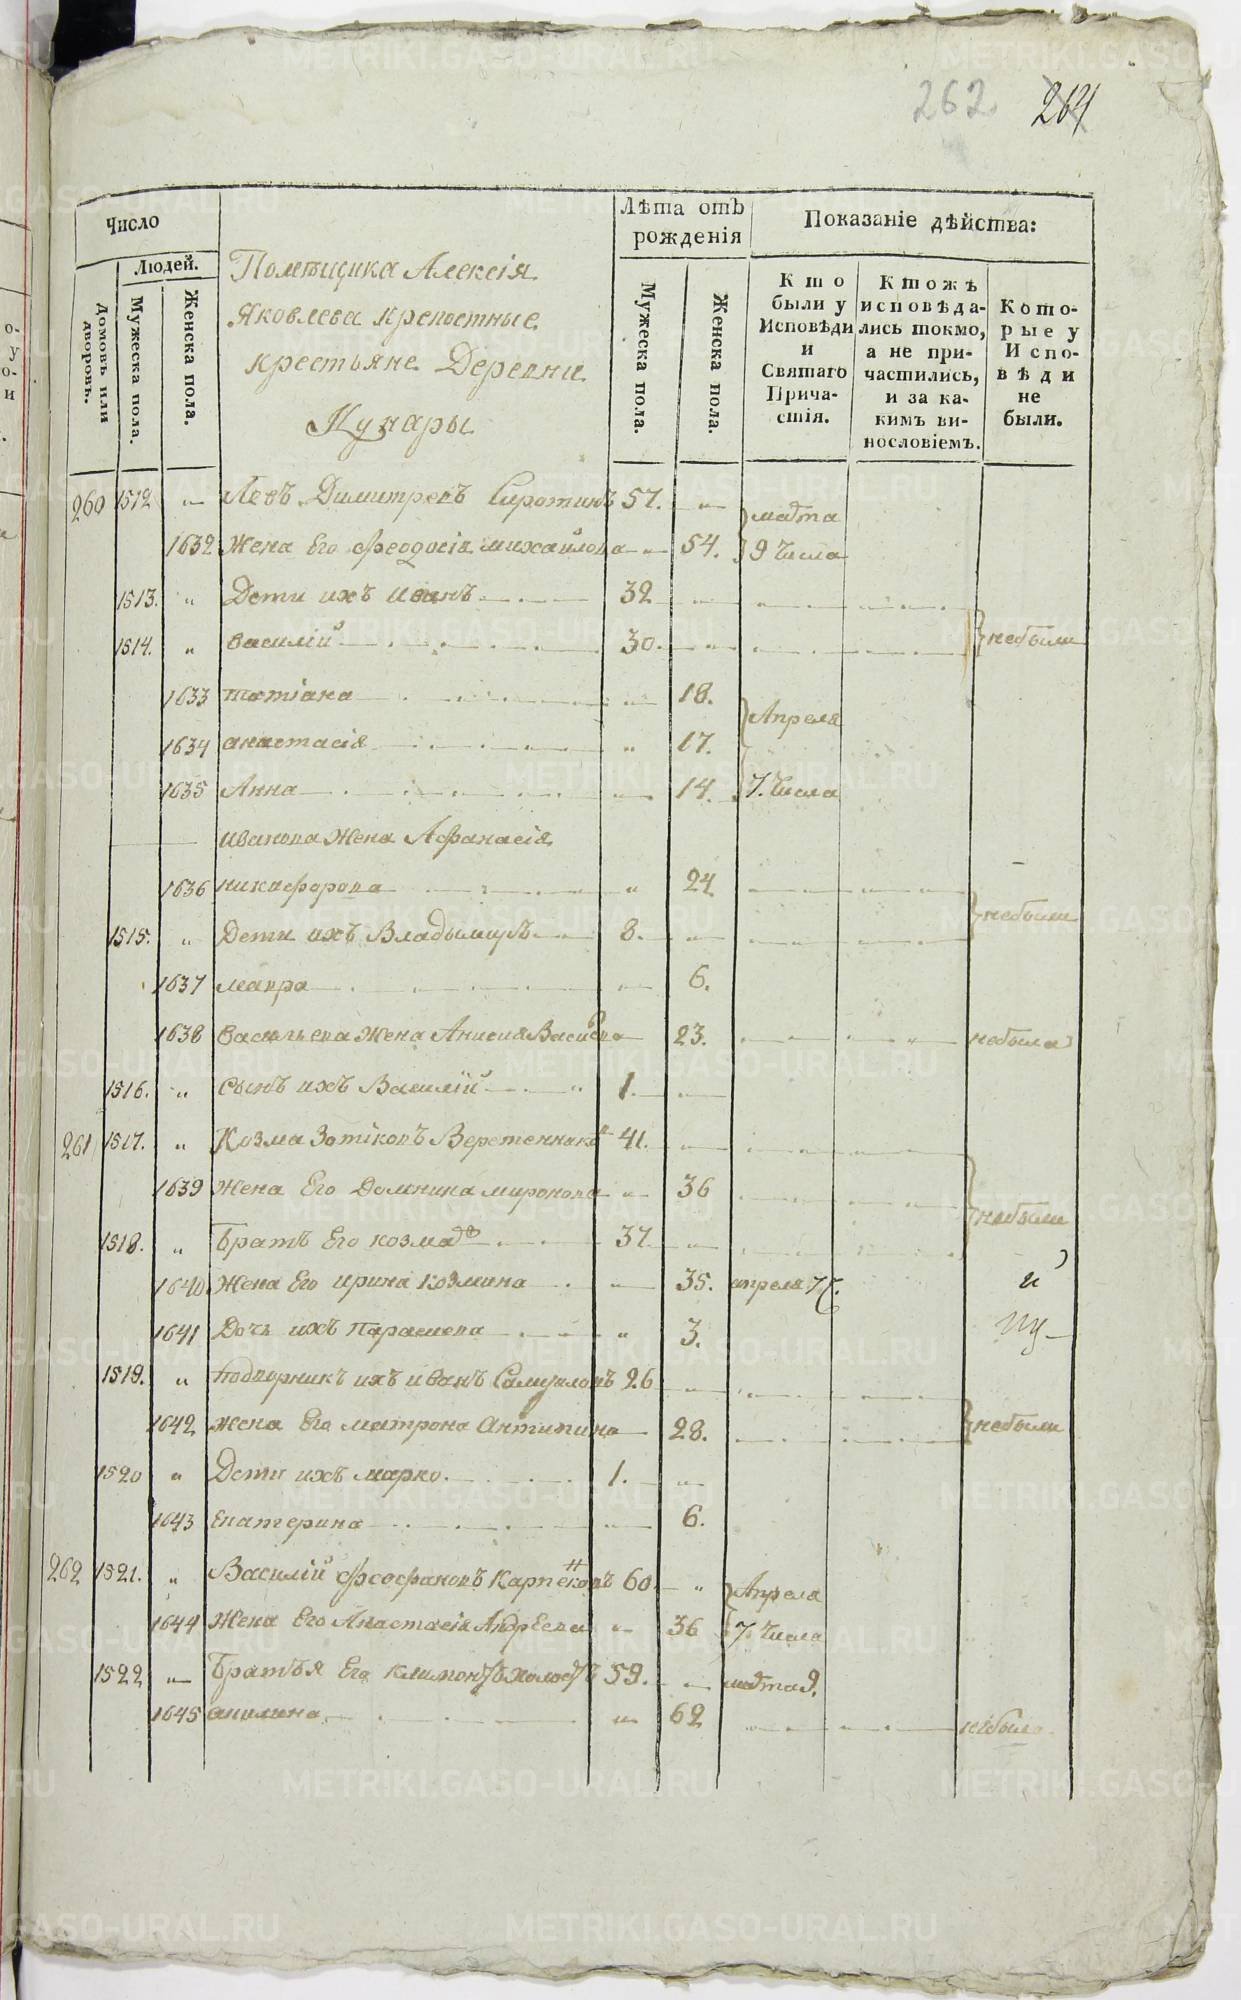 262. 264
Число
Людей.
Домовъ или дворовъ.
Мужеска пола.
Женска пола.
Помещика Алексія
Яковлева крепостные
крестьяне Деревни
Кунары
Лѣта отъ рожденія
Мужеска пола.
Женска пола.
Показаніе дѣйства:
Кто были у Исповѣди и Святаго Причастія.
Ктожъ исповѣдались токмо, а не причастились, и за какимъ винословіемъ.
Которые у Исповѣди не были.
260 1512 „ Левъ Димитревъ Сиротинъ 57. „ марта
1632 Жена Его Феодосія михайлова „ 54. 9 числа
1513. „ Дети ихъ Иванъ 32 „
1514. „ василій 30. „ небыли
1633 татіана „ 18. Апреля
1634 анастасія „ 17.
1635 Анна „ 14. 7. числа
иванова Жена Афанасія
1636 никифорова „ 24
1515. „ Дети ихъ Владымиръ 8. „ небыли
1637 мавра „ 6.
1638 васильева Жена Анисия Васильева 23. небыла
1516. „ сынъ ихъ Василій 1. „
261 1517. „ Козма Зотіковъ Веретенниковъ 41. „
1639 Жена Его Домнина миронова „ 36 небыли
1518. „ Братъ Его козма 37 „
1640 Жена Его ирина Козмина „ 35. апреля 7.
1641 Дочь ихъ Парасковa „ 3.
1519. „ подворникъ ихъ иванъ Самуиловъ 26 „
1642 жена Его матрона Антипина 28. небыли
1520 „ Дети ихъ марко. 1. „
1643 Екатерина „ 6.
262 1521. „ Василій Феофановъ Карпековъ 60. „ Апреля
1644 Жена Его Анастасія Андреева „ 36 7. числа
1522 „ Братья Его климонтъ холостъ 59. „ марта 9.
1645 акилина „ 62 небыла
METRIKI.GASO-URAL.RU